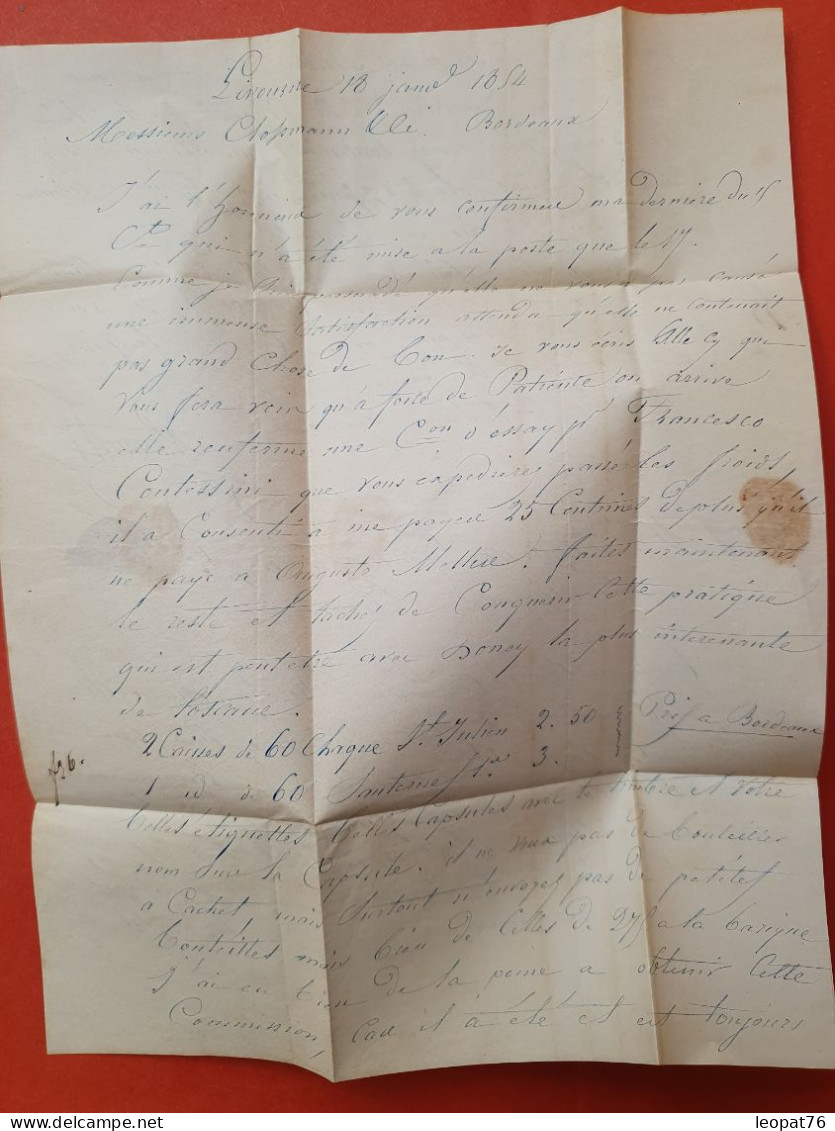 Livourne 18 janv 1854
Messieurs Clopmann & Cie. Bordeaux
J'ai l'honneur de vous confirmer ma dernière du 15
Ct qui n'a été mise a la poste que le 17.
Comme je suis persuadé qu'elle ne vous a pas causé
une immense satisfaction attendu qu'elle ne contenait
pas grand chose de bon. je vous écris celle cy qui
vous fera voir qu'a force de Patiente on arrive
elle renferme une Con d'éssay pr Francesco
Contessini que vous expedierez passé les froids,
il a Consenti a me payer 25 Centimes de plus qu'il
ne paye a Auguste. faites maintenant
le reste et taché de Conquerir Cette pratique
qui est peut etre avec Doney la plus interenante
de toscane.
2 Caisses de 60 Chaque St Julien 2.50 Prix a Bordeaux
f26. 1 id de 60 Sauterne 3.
belles étiquettes belles Capsules avec le timbre et votre
nom sur la Capsule. il ne veux pas de bouteilles
a Cachet, mais surtout n'envoyez pas de petites
bouteilles mais bien de Celles de 275 a la barique
J'ai eu bien de la peine a obtenir Cette
Commission, Car il a été et est toujours
leopat76